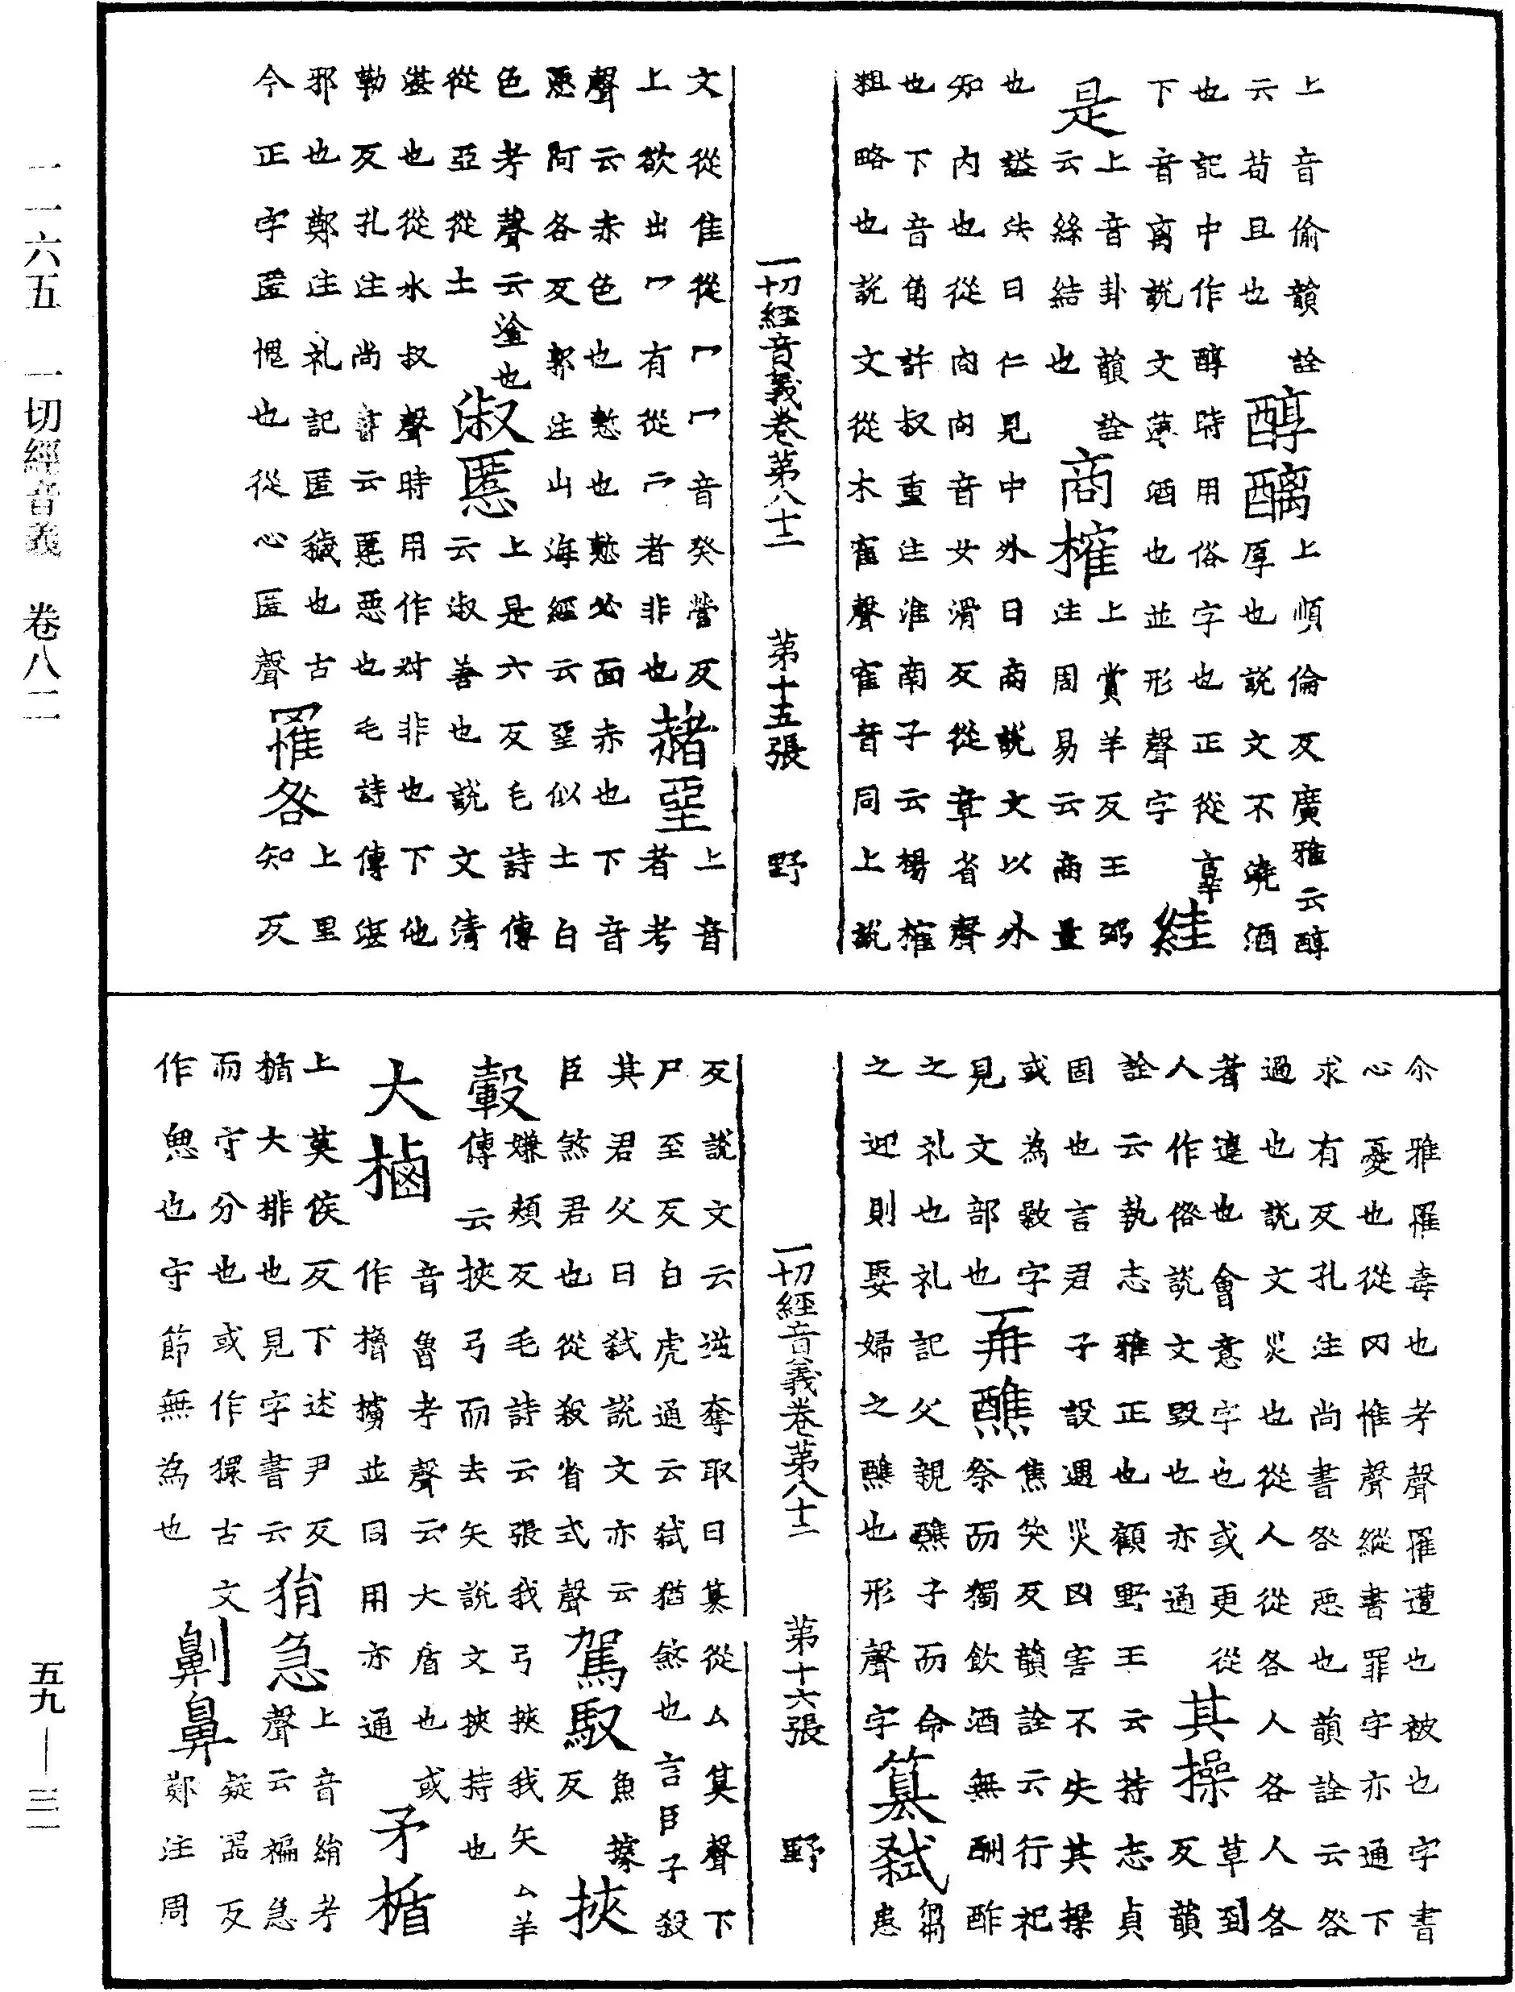 上音偷韻詮醇醨上順倫反廣雅云醇
云苟且也厚也說文不澆酒
也記中作醇時用俗字也正從𦎧
下音离說文薄酒也並形聲字絓
是上音卦韻詮商榷上賞羊反王弼
云絲結也注周易云商量
也謚法曰仁見中外曰商說文以外
知內也從㕯㕯音女滑反從章省聲
也下音角許叔重注淮南子云楊榷
粗略也說文從木隺聲隺音同上說
一切經音義卷第八十二 第十五張 野
文從隹從冂冂音癸營反赭堊上音
上欲出冂有從者非也者考
聲云赤色也慙也慙必面赤也下音
惡阿各反郭注山海經云堊似土白
色考聲云塗也淑慝上是六反毛詩傳
從亞從土云淑善也說文清
湛也從水叔聲時用作对非也下他
勒反孔注尚書云慝惡也毛詩傳湛
邪也鄭注礼記匿穢也古罹咎上里
今正字匿愧也從心匿聲知反
尒雅罹毒也考聲罹遭也被也字書
心憂也從冈惟聲縱書罪字亦通下
求有反孔注尚書咎惡也韻詮云咎
過也說文災也從人從各人各人各
者違也會意字也或更從其操草到
人作俗說文毀也亦通反韻
詮云執志雅正也顧野王云持志貞
固也言君子設遇災凶害不失其操
或為敦字再醮焦笑反韻詮云行祀
見文部也祭而獨飲酒無酬酢
之礼也礼記父親醮子而命篡弒芻
之迎則娶婦之醮也形聲字患
一切經音義卷第八十二 第十六張 野
反說文云逆奪取曰篡從厶算聲下
尸至反白虎通云弒猶煞也言臣子殺
其君父曰弒說文亦云駕馭魚據
臣煞君也從殺省式聲反挾
轂嫌頰反毛詩云張我弓挾我矢厶羊
傳云挾弓而去矢說文挾持也
大樐音魯考聲云大盾也或矛楯
作擼㯭並同用亦通
上莫侯反下述尹反狷急上音絹考
楯大排也見字書云聲云褊急
而守分也或作獧古文劓鼻疑器反
作思也守節無為也鄭注周
一一六五 一切經音義 卷八二
五九—三一